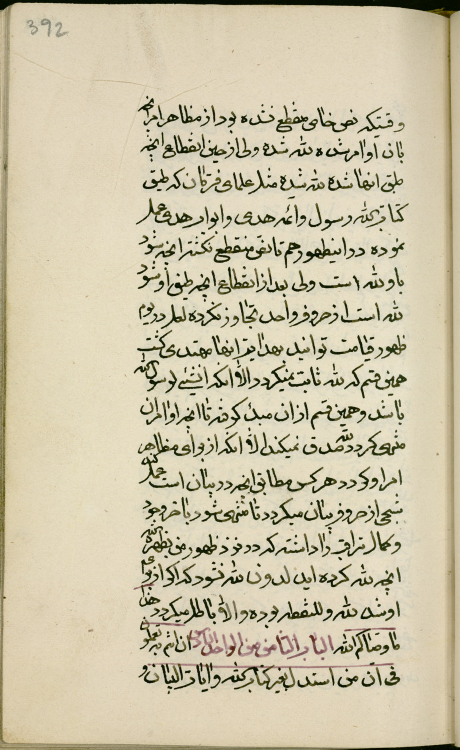 392
وقتیکه نص خاص منقطع نشده بود از مظاهر امر انچه
بان اوامر شده لله شده ولی از حین انقطاع انچه
طبق انها شده لله شده مثل علمای فرقان که طبق
کتاب الله و رسول و ائمه هدی و ابواب هدی عمل
نموده در اینظهور هم تا نص منقطع نگشته انچه شود
باو لله است ولی بعد از انقطاع انچه طبق او شود
لله است از حروف واحد تجاوز نکرده لعل در یوم
ظهور قیامت توانید بهدایت انها مهتدی گشت
همین قسم که لله ثابت نمیگردد الا انکه لرسول الله
باشد و همین قسم از ان مبدء گرفته تا انچه اوامر ان
منتهی گردد لله صدق نمیکند الا انکه از برای مظاهر
امر او گردد هر کس مطابق انچه در بیان است عمل کند
شبحی از حروف بیان میگردد تا منتهی شود باخر وجود
و کمال تراقب را داشته که در نزد ظهور من یظهره الله
انچه لله کرده اید لدون لله نشود که اگر از برای
او شد لله و للنقطه بوده و الا باطل میگردد هذا
ما وصاکم الله الباب الثامن من الواحد الثامن ان انتم به تعملون
فی ان من استدل بغیر کتاب الله و ایات البیان و